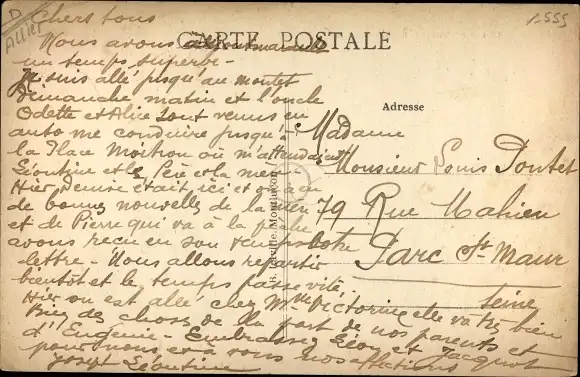 D
Allier
1.555
CARTE POSTALE
Adresse
Chers tous
Nous avons
un temps superbe -
Je suis allé jusqu'au montet
Dimanche matin et l'oncle
Odette et Alice sont venus en
auto me conduire jusqu'à
la Place où m'attendaient
Léontine et le Père et la mère
Hier Denise était ici et on a eu
de bonnes nouvelles de la mère
et de Pierre qui va à la pêche
avons reçu en son temps votre
lettre - Nous allons repartir
bientôt et le temps passe vite.
Hier on est allé chez Mme Victorine elle va très bien
Bien des choses de la part de nos parents et
d'Eugénie - Embrassez Léon et Jacquot
pour nous et à vous nos affections
Joseph Léontine
Madame
Monsieur Louis Pontet
79 Rue Mahieu
Parc St Maur
Seine